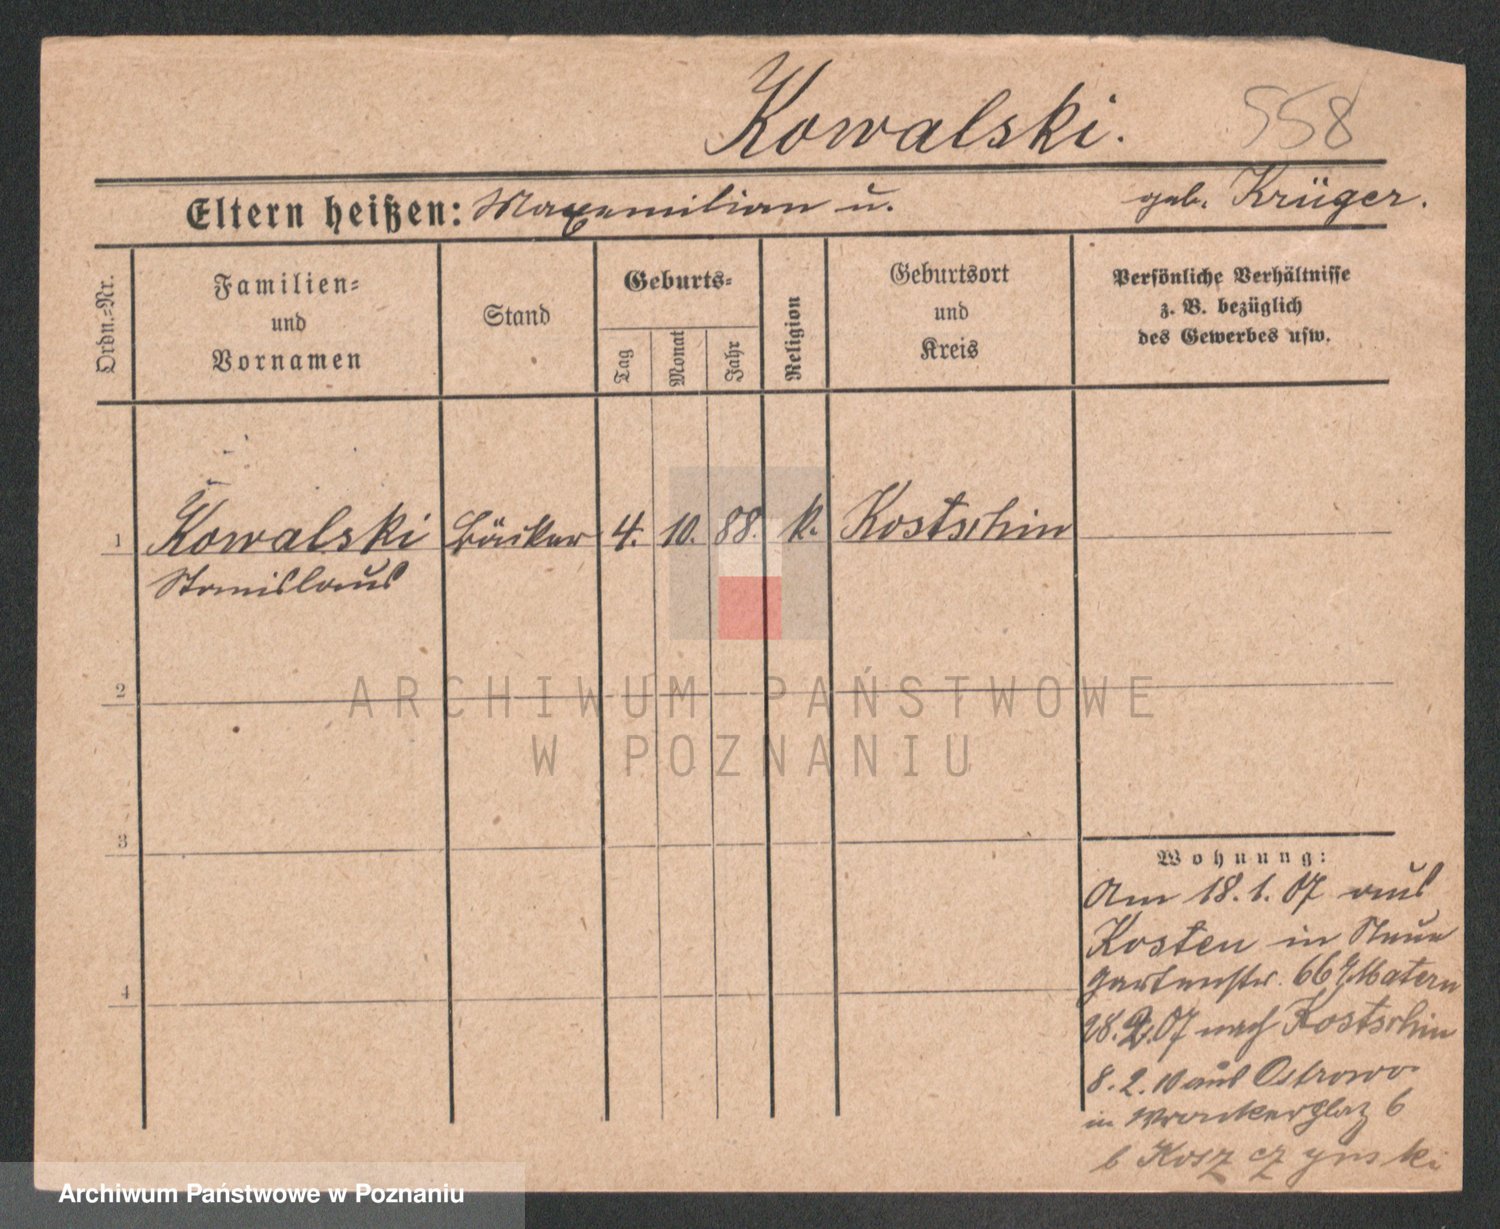 Kowalski. 558
Eltern heißen: Maxemilian u. geb. Krüger.
Ordn.-Nr.
Familien-
und
Vornamen
Stand
Geburts-
Tag
Monat
Jahr
Religion
Geburtsort
und
Kreis
Persönliche Verhältnisse
z. B. bezüglich
des Gewerbes usw.
1 Kowalski Bäcker 4. 10. 88. k. Kostschin
Stanislaus
2
ARCHIWUM PAŃSTWOWE
W POZNANIU
3
Wohnung:
Am 18. 1. 07 aus
Kosten in Neue
Gartenstr. 66 Matern
28. 2. 07 nach Kostschin
8. 2. 10 aus Ostrowo
in Wronkerplatz 6
b Koszczynski
4
Archiwum Państwowe w Poznaniu